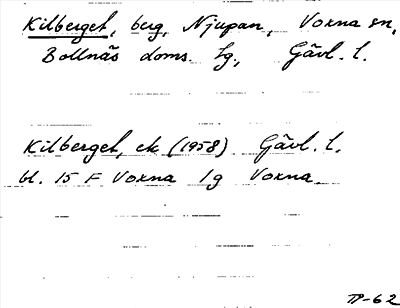 Kilberget, berg, Njupan, Voxna sn,
Bollnäs doms. lg., Gävl. l.
Kilberget, ek (1958) Gävl. l.
bl. 15 F Voxna lg Voxna
TP-62